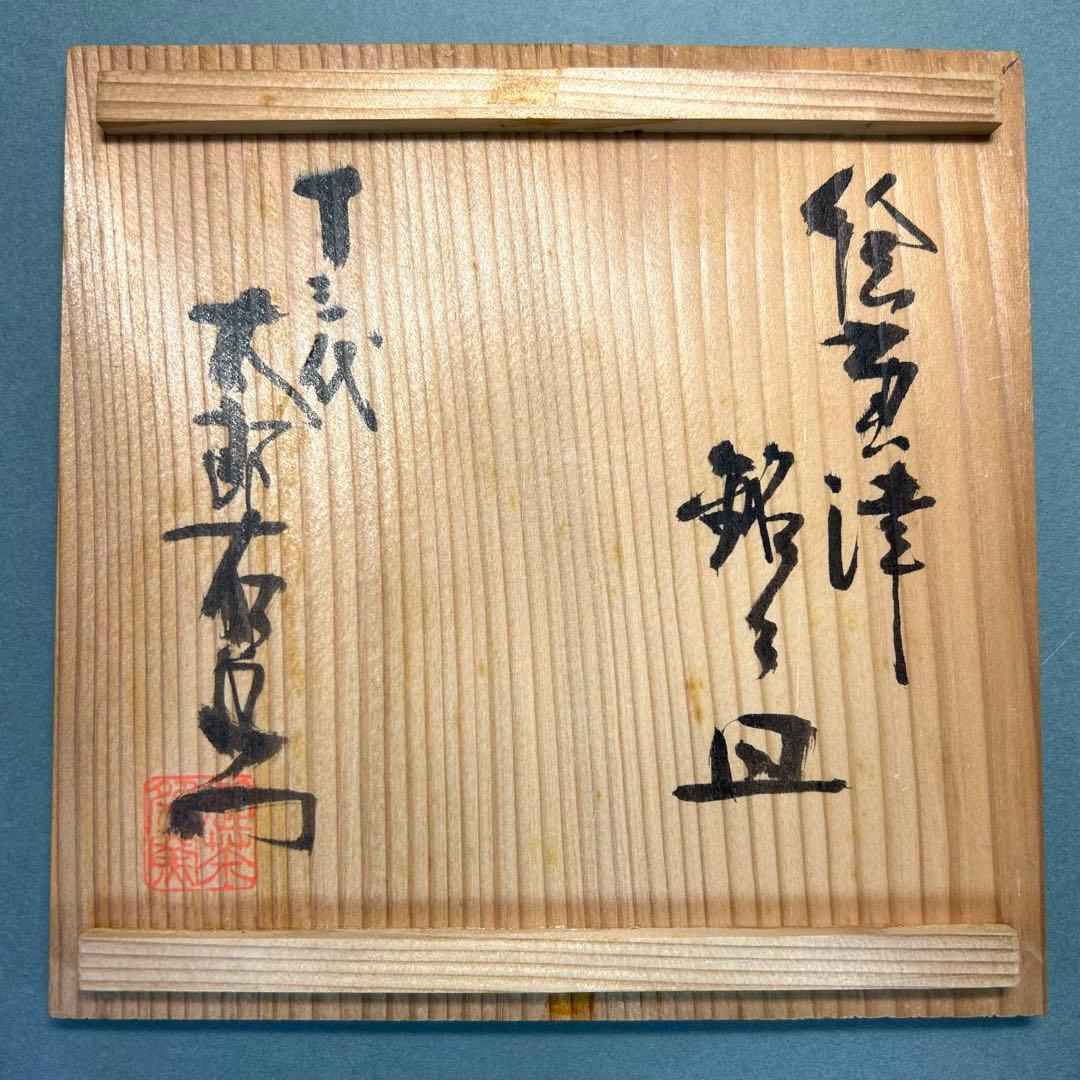 絵唐津
銘々皿
十三代
太郎右衛門